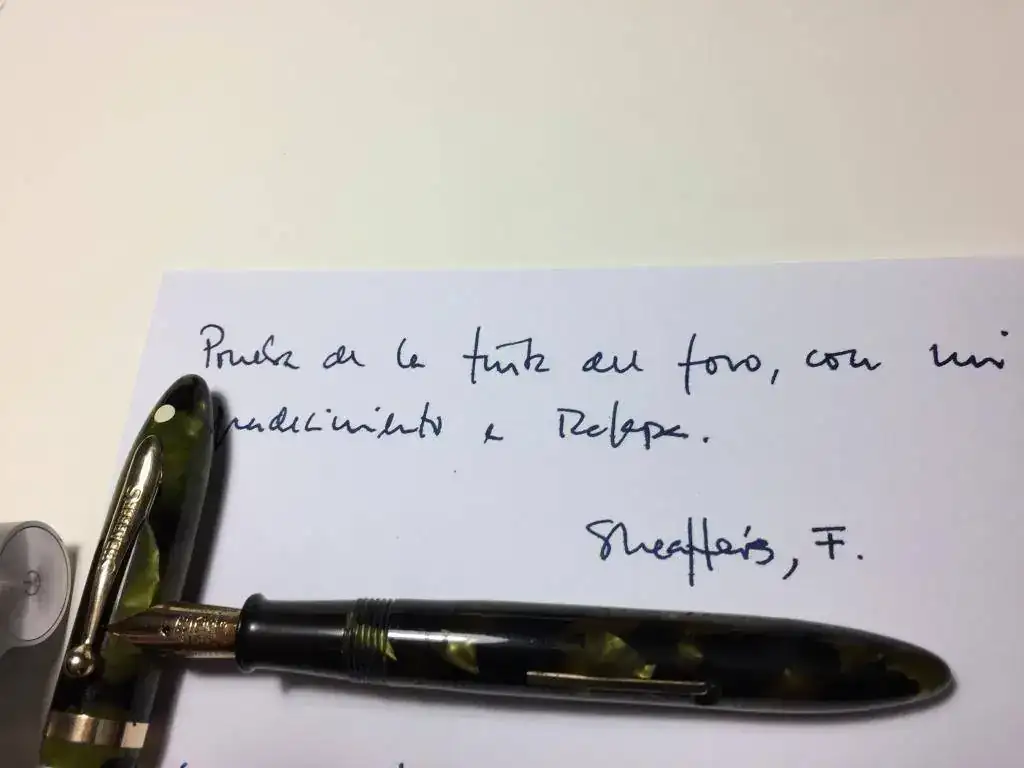 Prueba de la tinta del foro, con mi
agradecimiento a Relapa.
Sheaffer's, F.
SHEAFFER'S